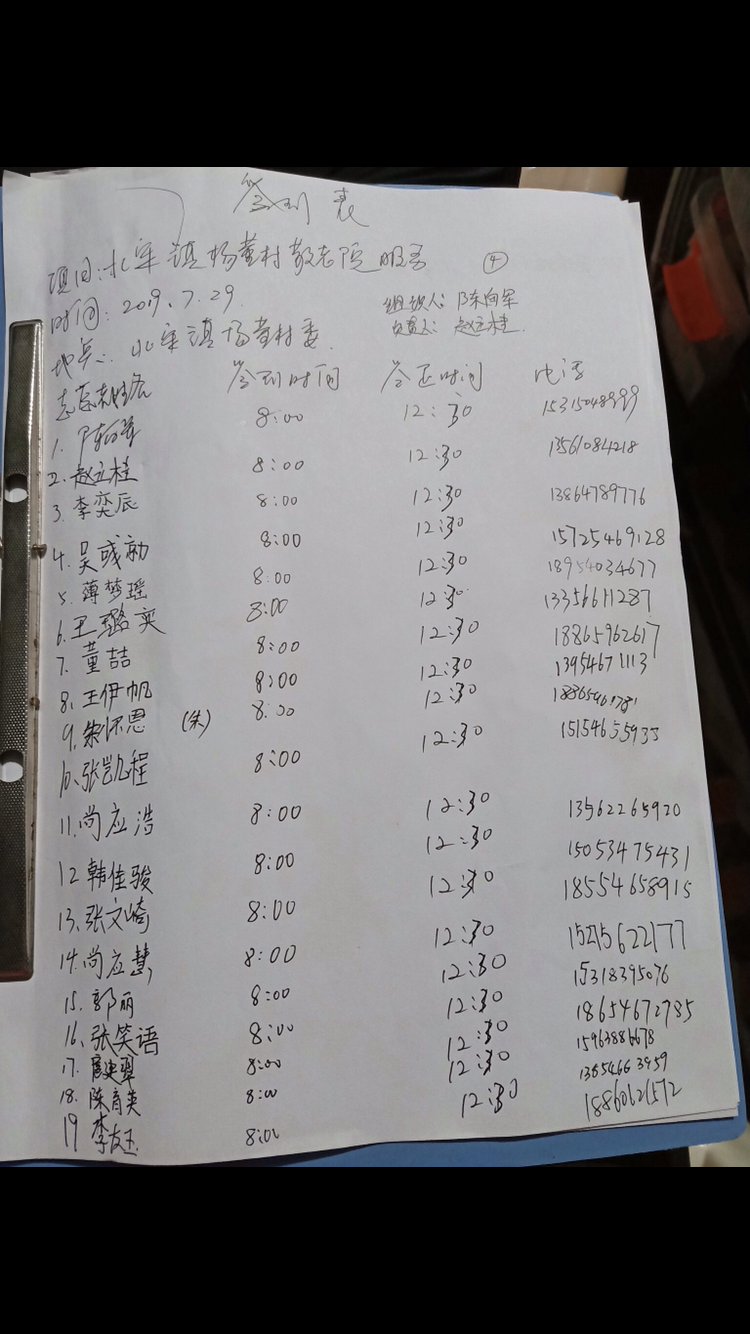 签到表
项目:北宋镇杨董村敬老院服务 ④
时间:2019.7.29.
组织人:陈向军
负责人:赵立桂.
地点:北宋镇杨董村委.
志愿者姓名 签到时间 签退时间 电话
1. 陈向军 8:00 12:30 15315048999
2. 赵立桂 8:00 12:30 13561084218
3. 李奕辰 8:00 12:30 13864789776
4. 吴彧勍 8:00 12:30 15725469128
5. 薄梦瑶 8:00 12:30 18954034677
6. 王璐奕 8:00 12:30 13356611287
7. 董喆 8:00 12:30 18865962617
8. 王伊帆 8:00 12:30 13954671113
9. 朱怀恩 (朱) 8:00 12:30
10. 张凯程 8:00 12:30 15154655933
11. 尚应浩 8:00 12:30 13562265920
12 韩佳骏 8:00 12:30 15053475431
13. 张文崎 8:00 12:30 18554658915
14. 尚应慧 8:00 12:30 15215622177
15. 郭丽 8:00 12:30 15318395076
16. 张笑语 8:00 12:30 18654672785
17. 8:00 12:30 15963886678
18. 陈育英 8:00 12:30 13854663959
19 李友玉 8:00 12:30 18860621572